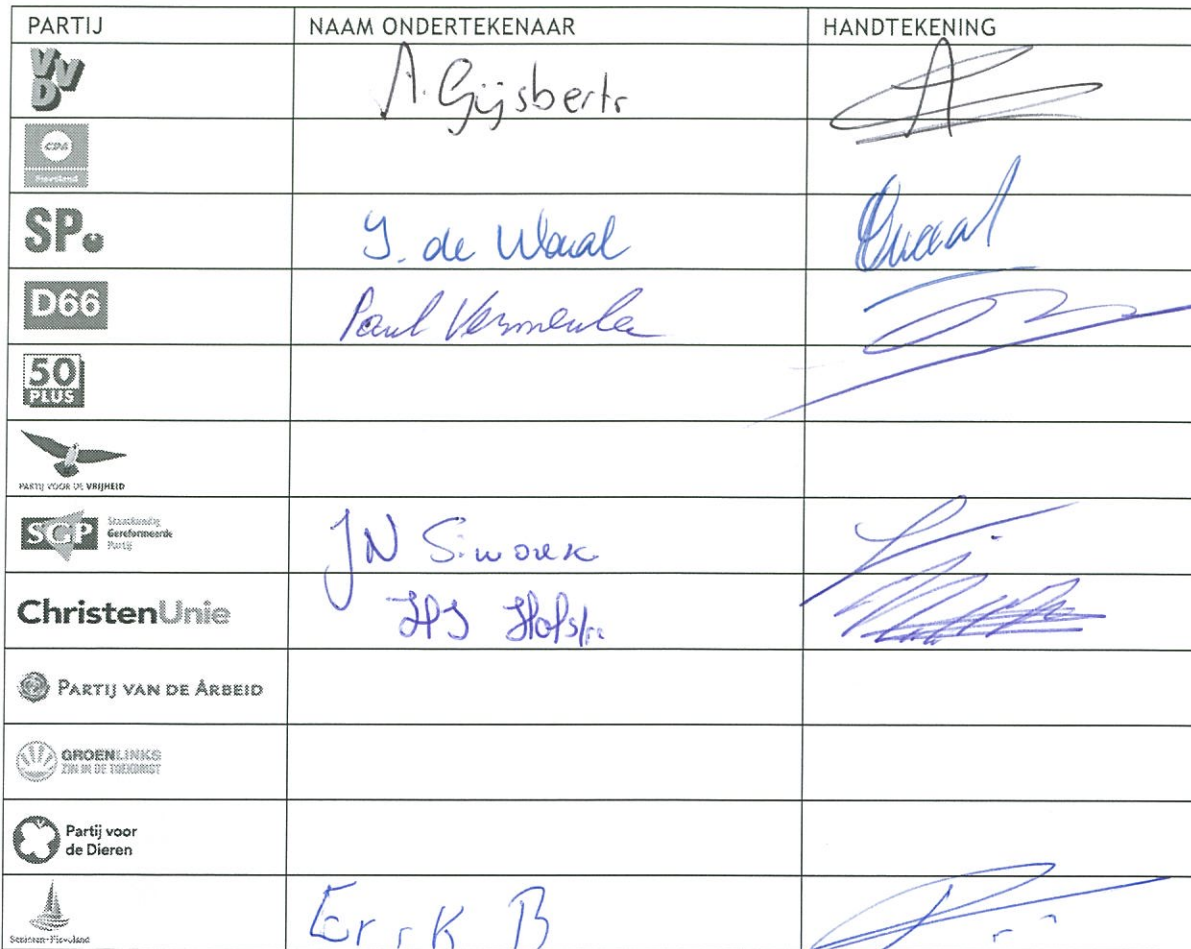 PARTIJ NAAM ONDERTEKENAAR HANDTEKENING
VVD A. Gijsberts
CDA
Flevoland
SP. J. de Waal
D66 Paul Vermeulen
50
PLUS
PARTIJ VOOR DE VRIJHEID
SGP Staatkundig
Gereformeerde
Partij
JN
ChristenUnie
PARTIJ VAN DE ARBEID
GROENLINKS
ZIN IN DE TOEKOMST
Partij voor
de Dieren
Senioren-Flevoland B